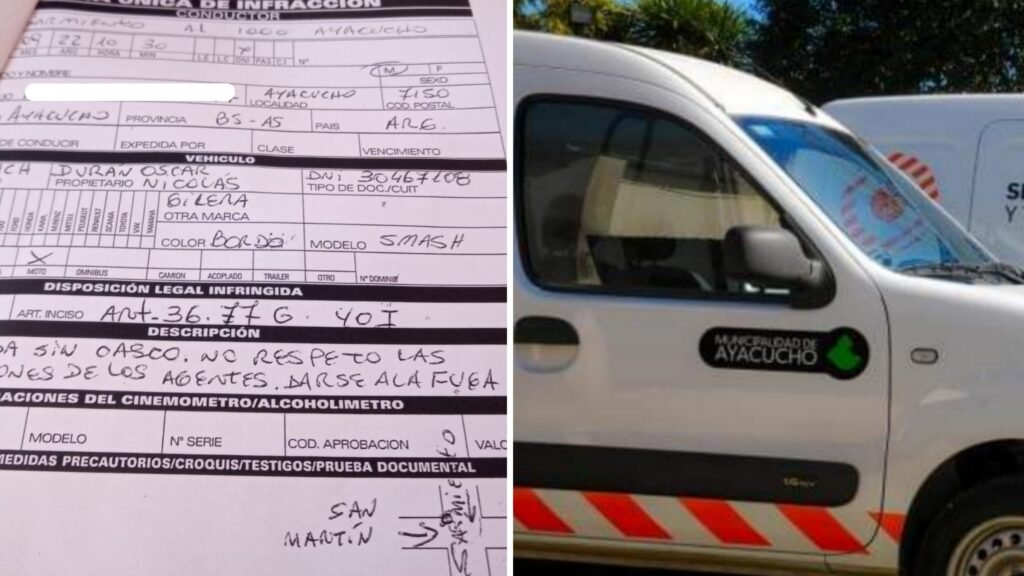 UNICA DE INFRACCIÓN
CONDUCTOR
SARMIENTO AL 1000 AYACUCHO
09 22 10 30
MES AÑO HORA MIN LE LC DNI PAS CI N°
M F
SEXO
DO Y NOMBRE
AYACUCHO 7150
LOCALIDAD COD. POSTAL
AYACUCHO PROVINCIA BS-AS PAIS ARG.
DE CONDUCIR EXPEDIDA POR CLASE VENCIMIENTO
VEHICULO
DURÁN OSCAR DNI 30467208
PROPIETARIO NICOLÁS TIPO DE DOC/CUIT
GILERA
OTRA MARCA
COLOR BORDÓ MODELO SMASH
X
MOTO OMNIBUS CAMION ACOPLADO TRAILER OTRO N° DOMINIO
DISPOSICIÓN LEGAL INFRINGIDA
ART. INCISO Art. 36. 77 G. 40 I
DESCRIPCIÓN
SIN CASCO. NO RESPETO LAS
ONES DE LOS AGENTES. DARSE A LA FUGA
ACIONES DEL CINEMOMETRO/ALCOHOLIMETRO
MODELO N° SERIE COD. APROBACION VALO
MEDIDAS PRECAUTORIOS/CROQUIS/TESTIGOS/PRUEBA DOCUMENTAL
SAN
MARTÍN
SARMIENTO
MUNICIPALIDAD DE
AYACUCHO
SE
Y